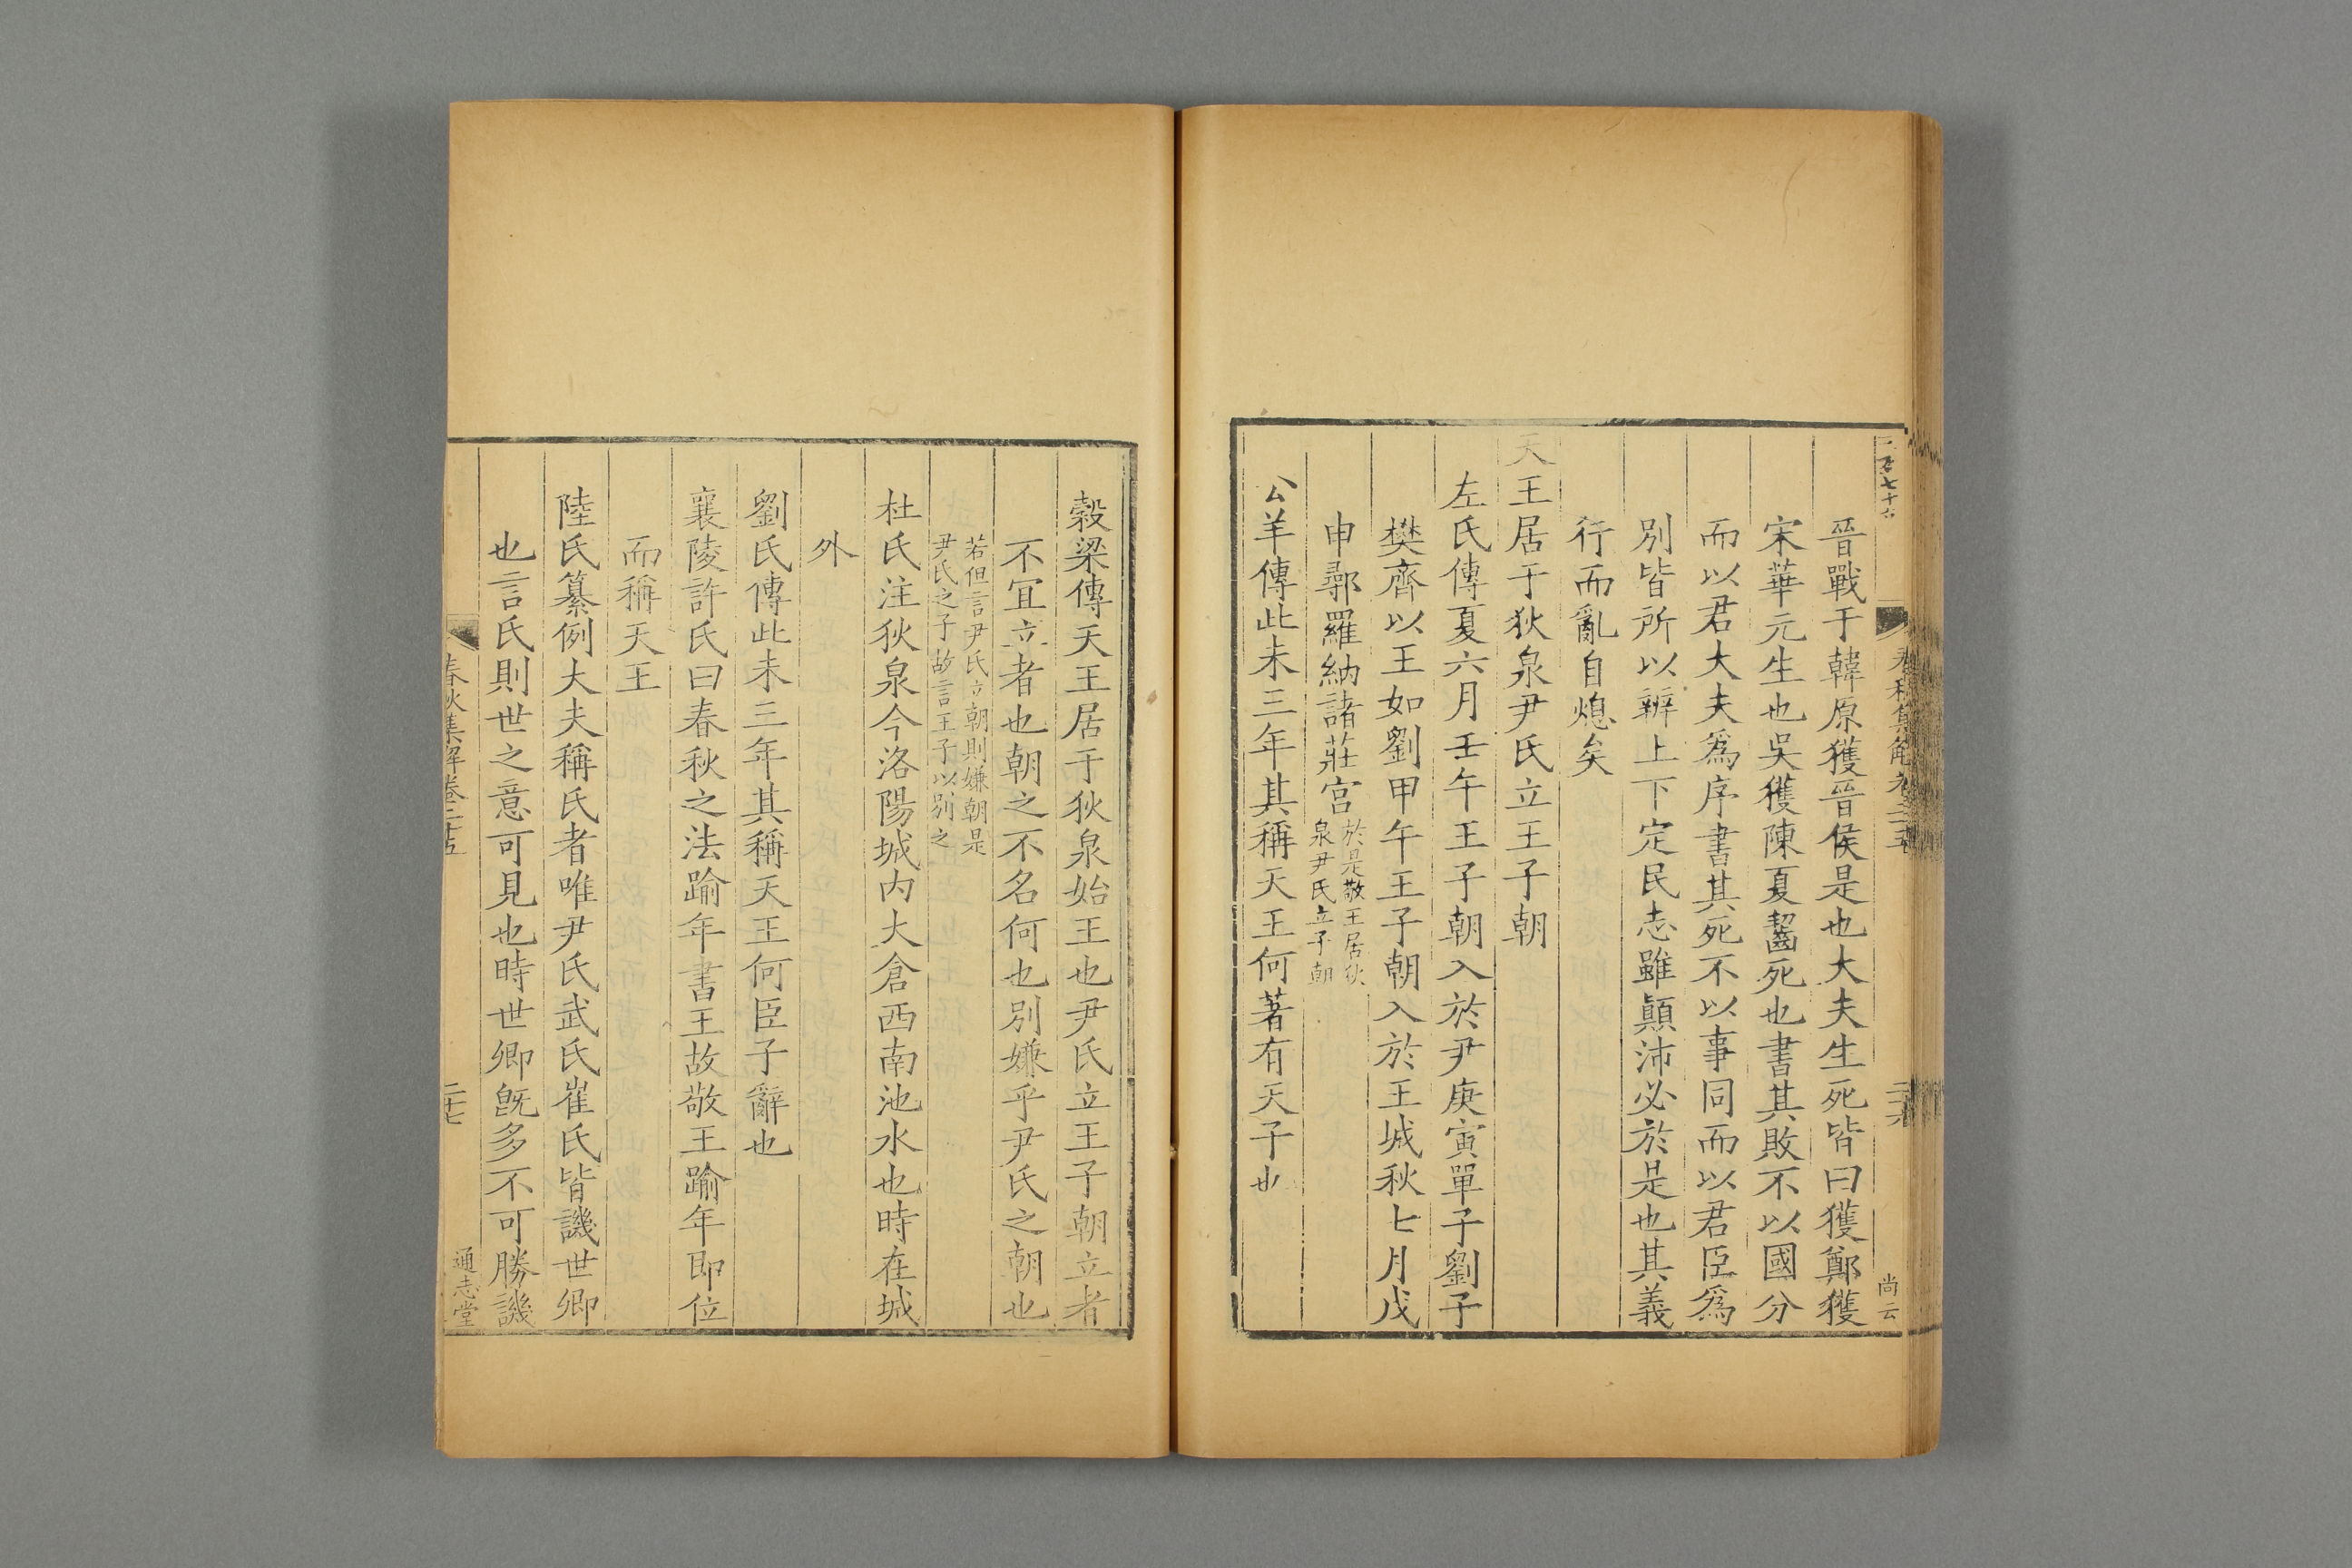 晉戰于韓原獲晉侯是也大夫生死皆曰獲鄭獲
宋華元生也吳獲陳夏齧死也書其敗不以國分
而以君大夫爲序書其死不以事同而以君臣爲
別皆所以辨上下定民志雖顛沛必於是也其義
行而亂自熄矣
天王居于狄泉尹氏立王子朝
左氏傳夏六月壬午王子朝入於尹庚寅單子劉子
樊齊以王如劉甲午王子朝入於王城秋七月戊
申鄩羅納諸莊宮
於是敬王居狄
泉尹氏立子朝
公羊傳此未三年其稱天王何著有天子也
尚云
穀梁傳天王居于狄泉始王也尹氏立王子朝立者
不宜立者也朝之不名何也別嫌乎尹氏之朝也
若但言尹氏立朝則嫌朝是
尹氏之子故言王子以別之
杜氏注狄泉今洛陽城内大倉西南池水也時在城
外
劉氏傳此未三年其稱天王何臣子辭也
襄陵許氏曰春秋之法踰年書王故敬王踰年即位
而稱天王
陸氏纂例大夫稱氏者唯尹氏武氏崔氏皆譏世卿
也言氏則世之意可見也時世卿旣多不可勝譏
春秋集解卷二十五
二十七
通志堂